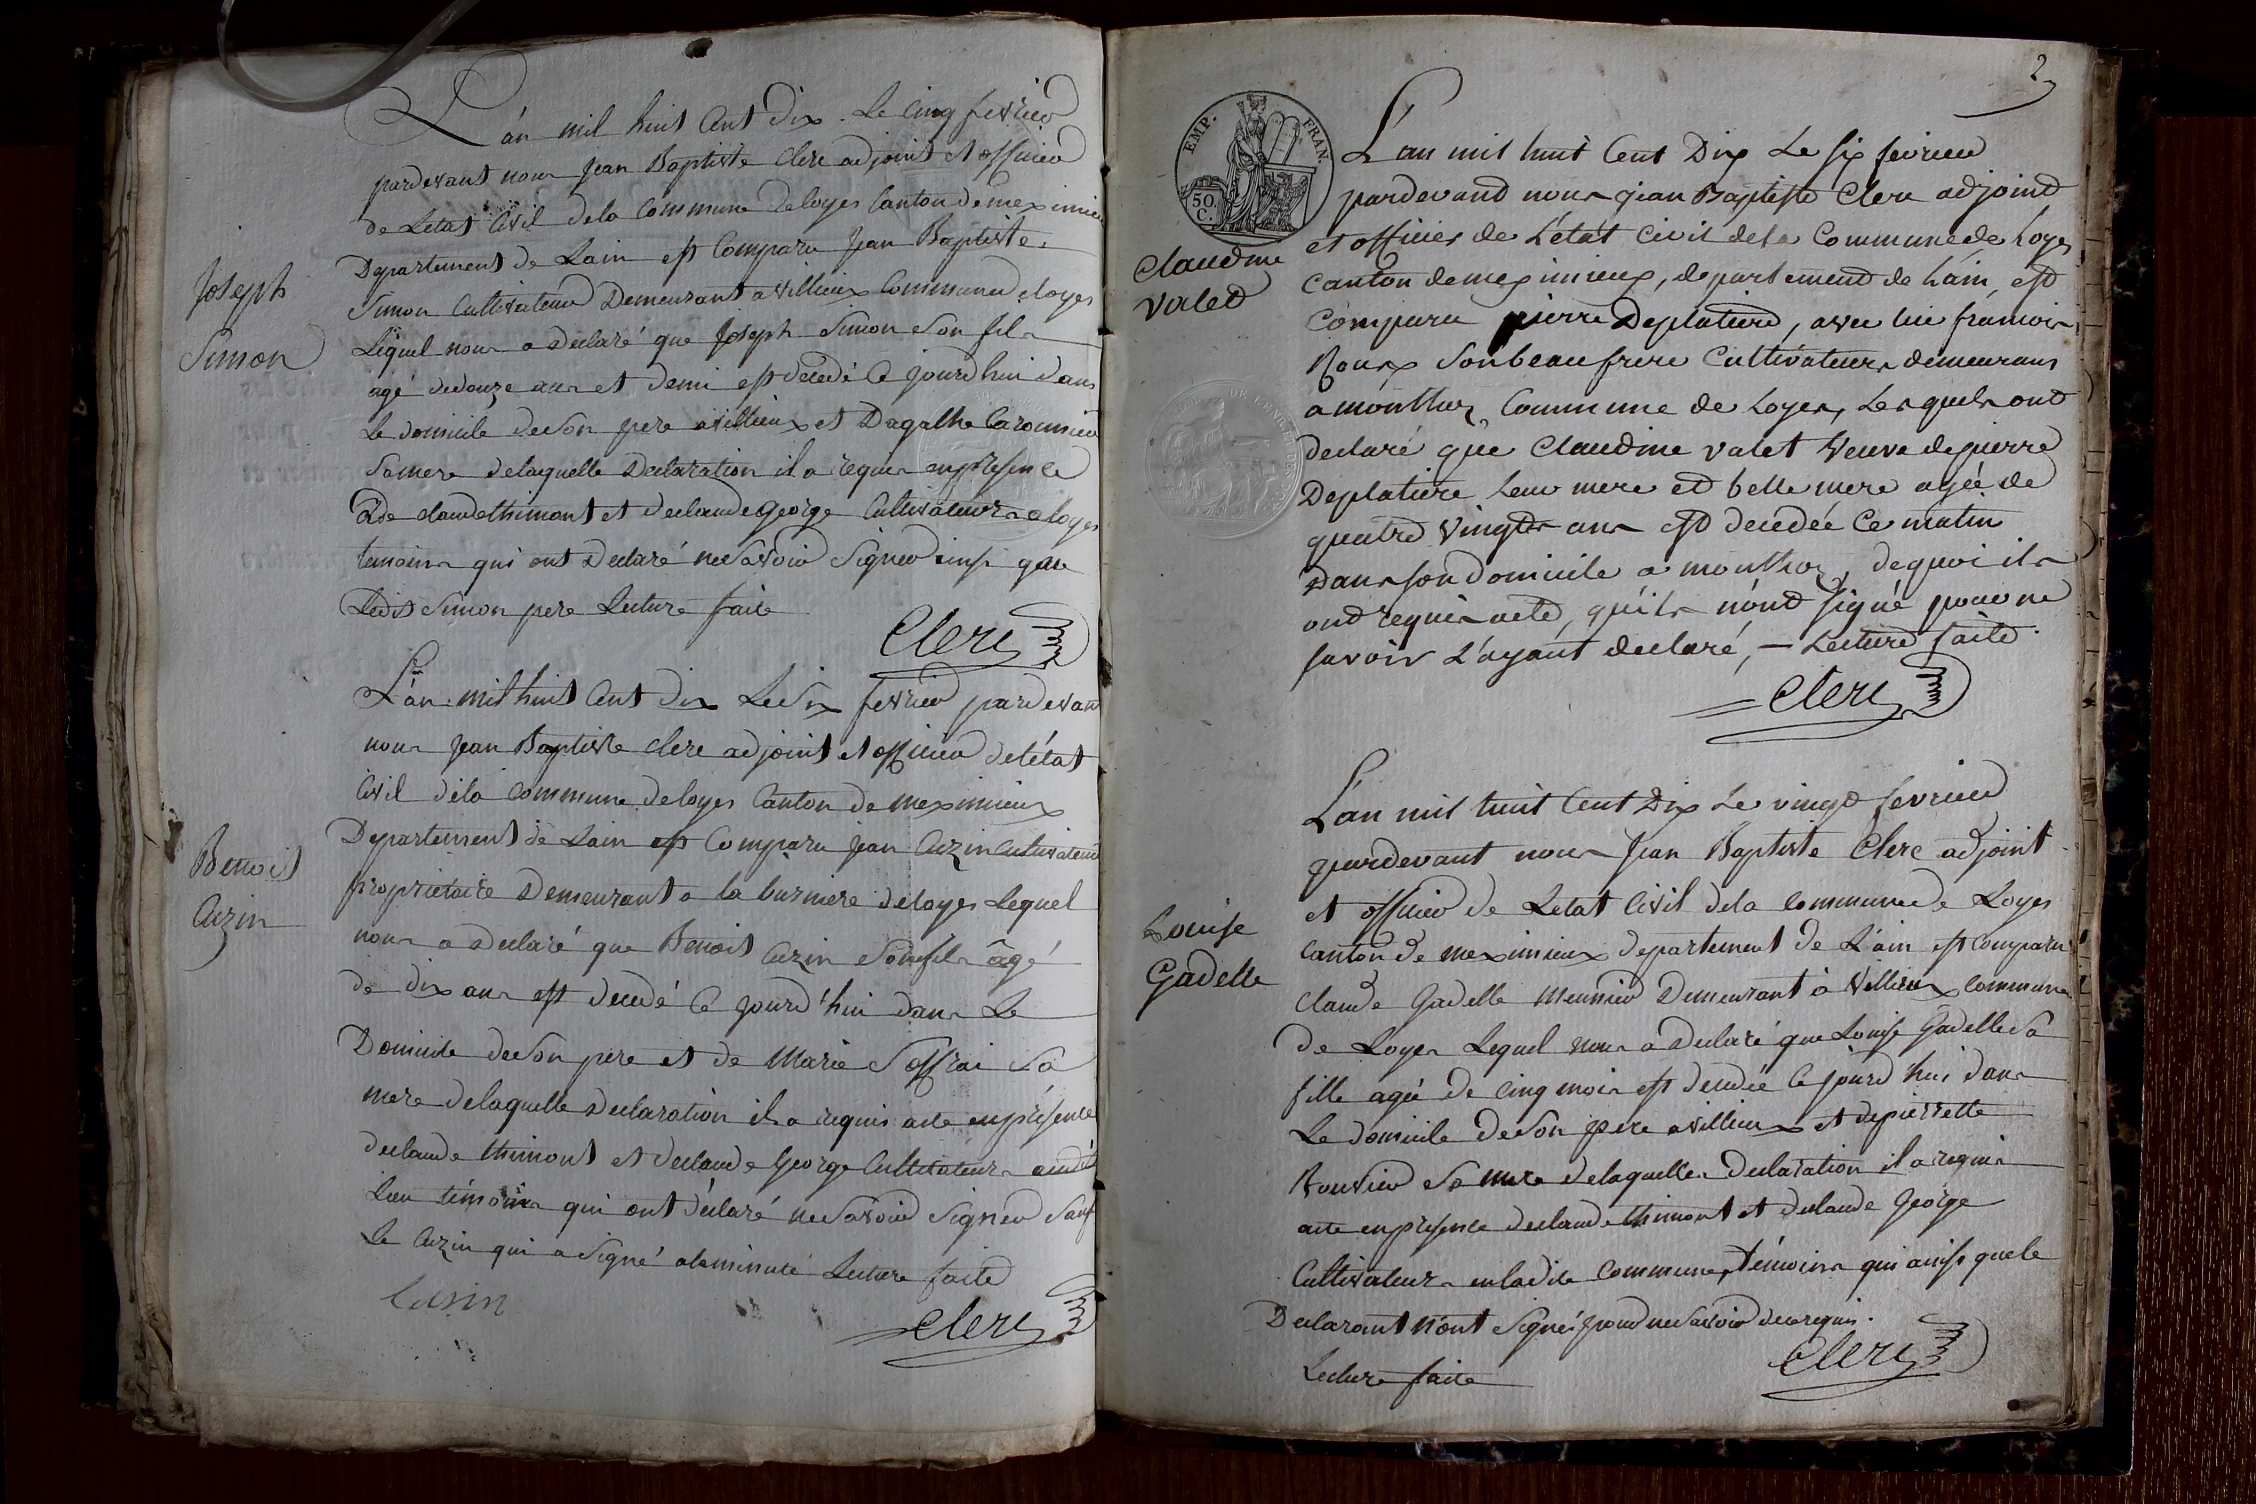 L'an mil huit Cent Dix. Le cinq fevrier
pardevant nous Jean Baptiste Clerc adjoint et officier
de Letat Civil dela Commune deloyes Canton de meximieu
Departement de Lain est Comparu Jean Baptiste
Simon Cultivateur Demeurant a villieux Commune deloyes
Lequel nous a declaré que Joseph Simon Son fils
agé dedouze ans et demi est decedé Ce jourdhui dans
Le domicile deson pere a villieux et Dagathe
Samere delaquelle Declaration il a requis en presence
de claude thimont et declaude george Cultivateurs a loyes
temoins qui ont declaré ne Savoir Signer ainsi que
Ledit Simon pere Lecture faite
Clerc
Joseph
Simon
L'an mil huit Cent dix Le six fevrier pardevant
nous Jean Baptiste clerc adjoint et officier de l'état
Civil dela Commune deloyes Canton de meximieux
Departement de Lain est Comparu Jean Cuzin cultivateur
proprietaire Demeurant a la deloyes Lequel
nous a declaré que Benoit Cuzin Son fils âgé
de dix ans est decedé Ce jourd'hui dans Le
Domicile deson pere et de Marie Soffrai Sa
mere delaquelle declaration il a requis acte en présence
declaude thimont et declaude George Cultivateurs audit
Lieu témoins qui ont déclaré ne Savoir Signer Sauf
le Cuzin qui a Signé alaminute Lecture faite
Cusin
Clerc
Benoit
Cuzin
2
EMP. FRAN.
50.
C.
L'an mil huit Cent Dix Le six fevrier
pardevant nous jean Baptiste Clerc adjoint
et officier de L'état Civil dela Commune de Loyes
Canton demeximieux, departement de Lain, est
Comparu pierre Deplatiere, avec lui francois
Roux Son beaufrere Cultivateurs demeurans
a monthoz Commune de Loyes, Lesquels ont
declaré que Claudine valet Veuve de pierre
Deplatiere Leur mere et belle mere agée de
quatre Vingts ans est decedée Ce matin
Dans son domicile a monthoz, dequoi ils
ont requis acte, qu'ils n'ont signé pour ne
savoir L'ayant declaré, — Lecture faite.
Clerc
Claudine
valet
L'an mil huit Cent Dix Le vingt fevrier
pardevant nous Jean Baptiste Clerc adjoint
et officier de Letat Civil dela Commune de Loyes
Canton de meximieux departement de L'ain est comparu
claude Gadelle Meunier Demeurant à Villieux Commune
de Loyes Lequel nous a declaré que Louise Gadelle Sa
fille agée de cinq mois est decedée Ce jourd'hui dans
Le domicile deson pere a villieux et de pierrette
Bouvier Sa mere delaquelle Declaration il a requis
acte en presence declaude thimont et declaude George
Cultivateurs enladite Commune, témoins qui ainsi que le
Declarant n'ont Signé pour ne Savoir dece requis.
Lecture faite
Clerc
Louise
Gadelle